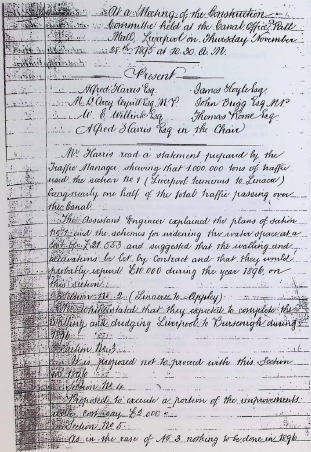 At a Meeting of the Construction
Committee held at the Canal Office, Pall
Mall, Liverpool on Thursday November
28th 1895 at 10.30 A.M.
Present
Alfred Harris Esq. James Hoyle Esq
M. D'Arcy Wyvill Esq M.P John Brigg Esq M.P.
W. E. Willink Esq Thomas Rome Esq
Alfred Harris Esq in the Chair
Mr Harris read a statement prepared by the
Traffic Manager, shewing that 1,000,000 tons of traffic
used the section No 1 (Liverpool Terminus to Linacre)
being nearly one half of the total traffic passing over
the Canal.
The Assistant Engineer explained the plans of section
No 1 and the schemes for widening the water space at a
cost of £21.553 and suggested that the walling and
be let by Contract and that they would
probably expend £10.000 during the year 1896, on
this section.
Section No. 2 (Linacre to Appley)
stated that they expected to complete the
walling and dredging Liverpool to Burscough during
1896
Section No. 3
It is proposed not to proceed with this Section
in 1896
Section No 4
Proposed to execute a portion of the improvements
cost say £2.000
Section No 5
As in the case of No 3 nothing to be done in 1896